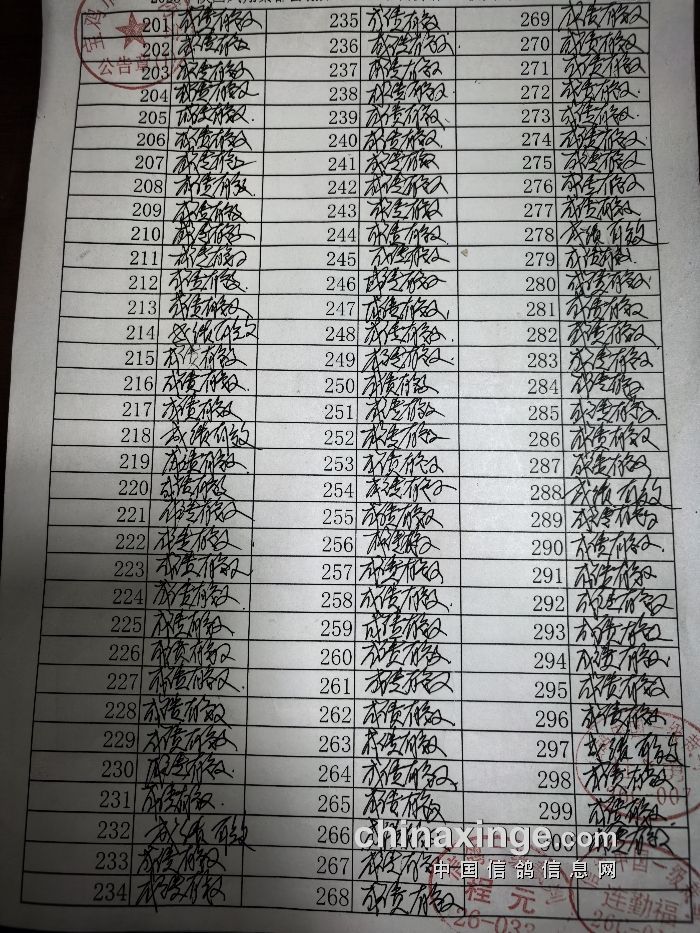 201 成绩有效 235 成绩有效 269 成绩有效
202 成绩有效 236 成绩有效 270 成绩有效
203 成绩有效 237 成绩有效 271 成绩有效
204 成绩有效 238 成绩有效 272 成绩有效
205 成绩有效 239 成绩有效 273 成绩有效
206 成绩有效 240 成绩有效 274 成绩有效
207 成绩有效 241 成绩有效 275 成绩有效
208 成绩有效 242 成绩有效 276 成绩有效
209 成绩有效 243 成绩有效 277 成绩有效
210 成绩有效 244 成绩有效 278 成绩有效
211 成绩有效 245 成绩有效 279 成绩有效
212 成绩有效 246 成绩有效 280 成绩有效
213 成绩有效 247 成绩有效 281 成绩有效
214 成绩有效 248 成绩有效 282 成绩有效
215 成绩有效 249 成绩有效 283 成绩有效
216 成绩有效 250 成绩有效 284 成绩有效
217 成绩有效 251 成绩有效 285 成绩有效
218 成绩有效 252 成绩有效 286 成绩有效
219 成绩有效 253 成绩有效 287 成绩有效
220 成绩有效 254 成绩有效 288 成绩有效
221 成绩有效 255 成绩有效 289 成绩有效
222 成绩有效 256 成绩有效 290 成绩有效
223 成绩有效 257 成绩有效 291 成绩有效
224 成绩有效 258 成绩有效 292 成绩有效
225 成绩有效 259 成绩有效 293 成绩有效
226 成绩有效 260 成绩有效 294 成绩有效
227 成绩有效 261 成绩有效 295 成绩有效
228 成绩有效 262 成绩有效 296 成绩有效
229 成绩有效 263 成绩有效 297 成绩有效
230 成绩有效 264 成绩有效 298 成绩有效
231 成绩有效 265 成绩有效 299 成绩有效
232 成绩有效 266 成绩有效
233 成绩有效 267 成绩有效
234 成绩有效 268 成绩有效
公告章
chinaxinge.com
中国信鸽信息网
程元
26-033
连勤福